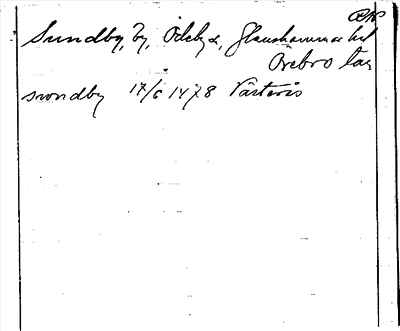 Sundby, by, Ödeby s, Glanshammar hd
Örebro län
swndby 17/6 1478 Västerås